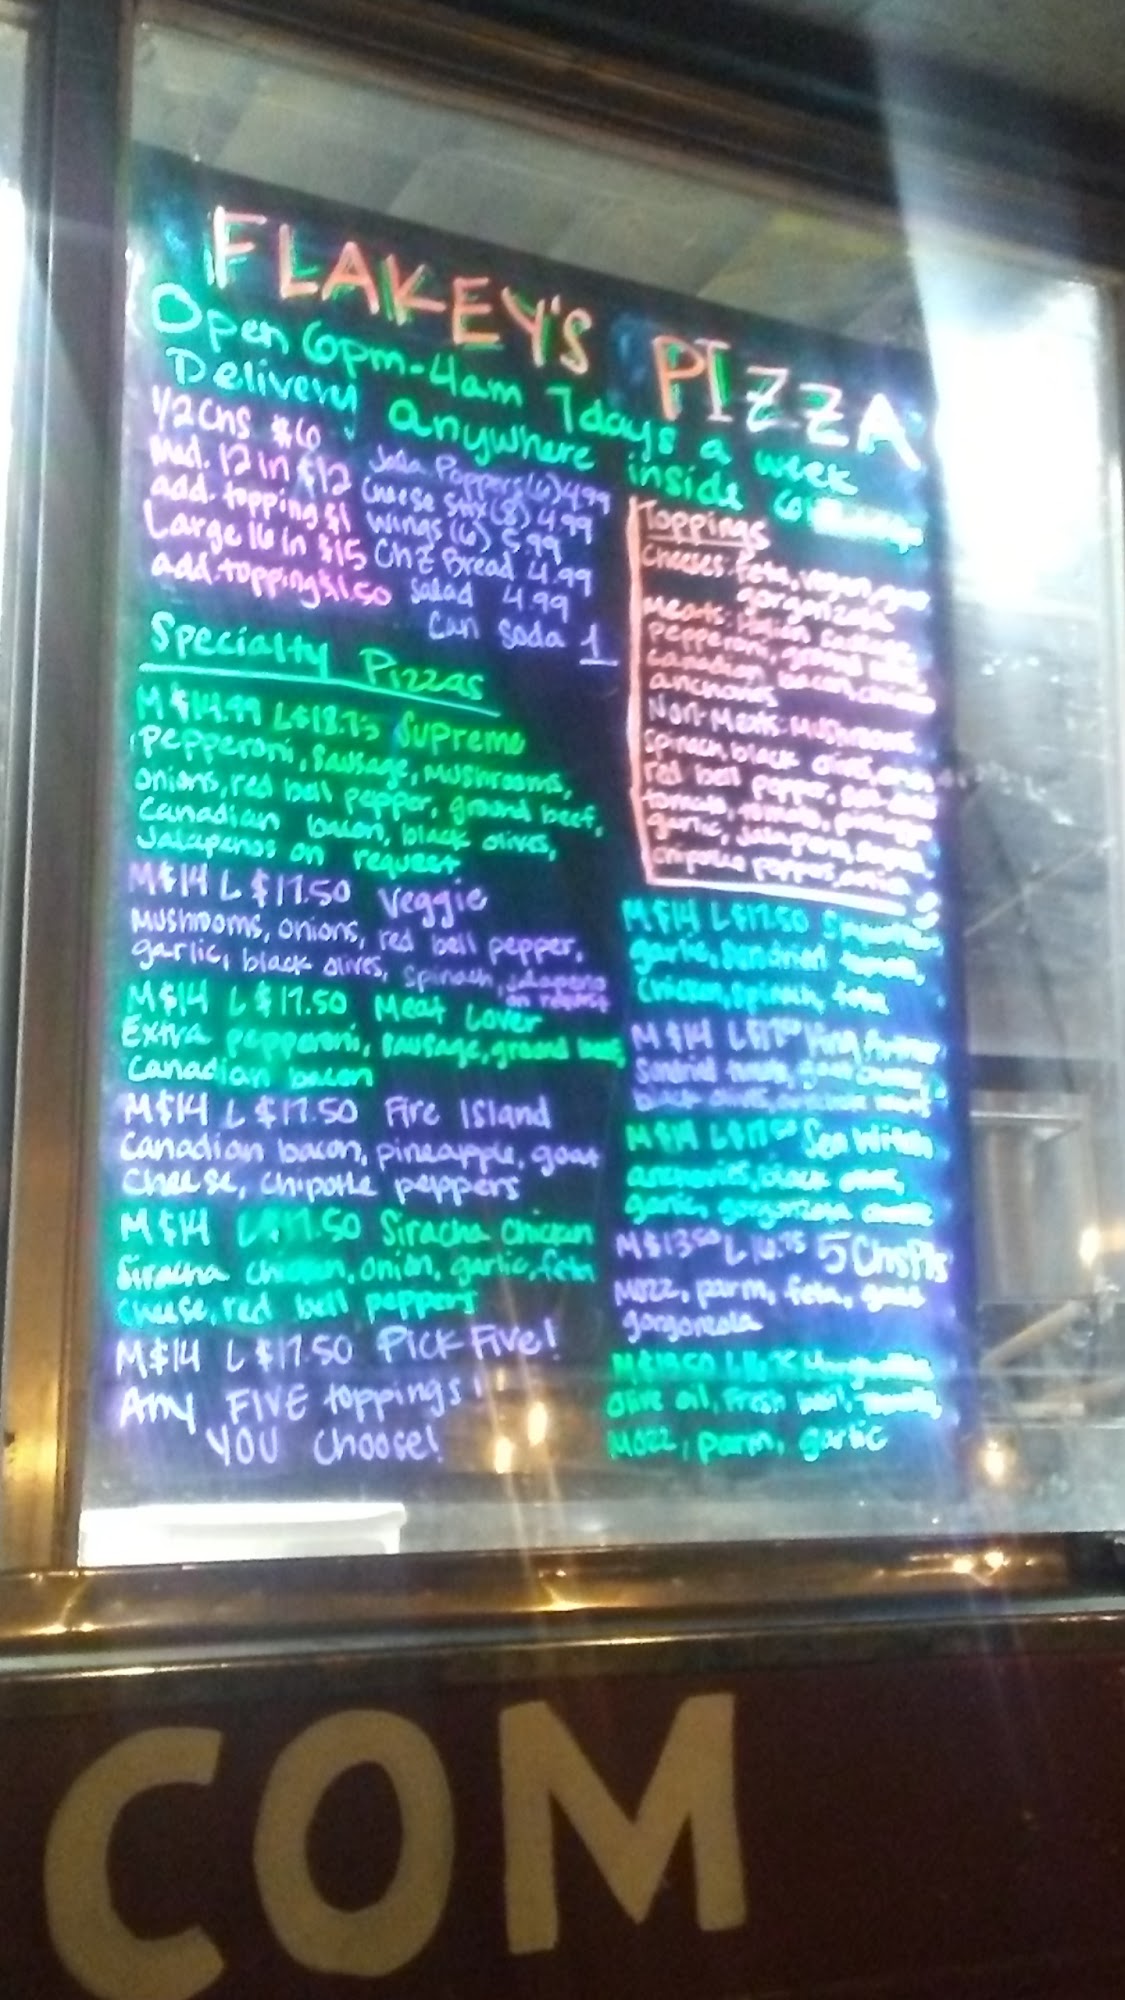 FLAKEY'S PIZZA
Open 6pm-4am 7days a week
Delivery anywhere inside
1/2 Chs $6
Med. 12 in $12
add. topping $1
Large 16 in $15
add. topping $1.50
Jala Poppers (6) 4.99
Cheese Stix (8) 4.99
Wings (6) 5.99
ChZ Bread 4.99
Salad 4.99
Can Soda 1
Toppings
Cheeses: feta, vegan, goat
gorgonzola
Meats: Italian Sausage,
Pepperoni, ground beef,
Canadian bacon, chicken
anchovies
Non-Meats: Mushrooms
spinach, black olives,
red bell pepper,
tomato,
garlic, Jalapeno,
chipotle peppers,
Specialty Pizzas
M $14.99 L $18.75 Supreme
pepperoni, Sausage, Mushrooms,
Onions, red bell pepper, ground beef,
Canadian bacon, black olives,
Jalapenos on request
M $14 L $17.50 Veggie
Mushrooms, onions, red bell pepper,
garlic, black olives, spinach, jalapeno
on request
M $14 L $17.50 Meat Lover
Extra pepperoni, sausage, ground beef,
Canadian bacon
M $14 L $17.50 Fire Island
Canadian bacon, pineapple, goat
Cheese, Chipotle peppers
M $14 L $17.50 Siracha Chicken
Siracha chicken, onion, garlic, feta
Cheese, red bell peppers
M $14 L $17.50 PICK FIVE!
Any FIVE toppings!
YOU Choose!
M $14 L $17.50
garlic,
Chicken, spinach, feta
M $14 L $17.50
black olives,
M $14 L $17.50 Sea Witch
anchovies, black olives,
garlic, gorgonzola
M $13.50 L 16.75 5 Chs Pls
Mozz, parm, feta, goat
gorgonzola
Olive oil, Fresh basil,
Mozz, parm, garlic
COM